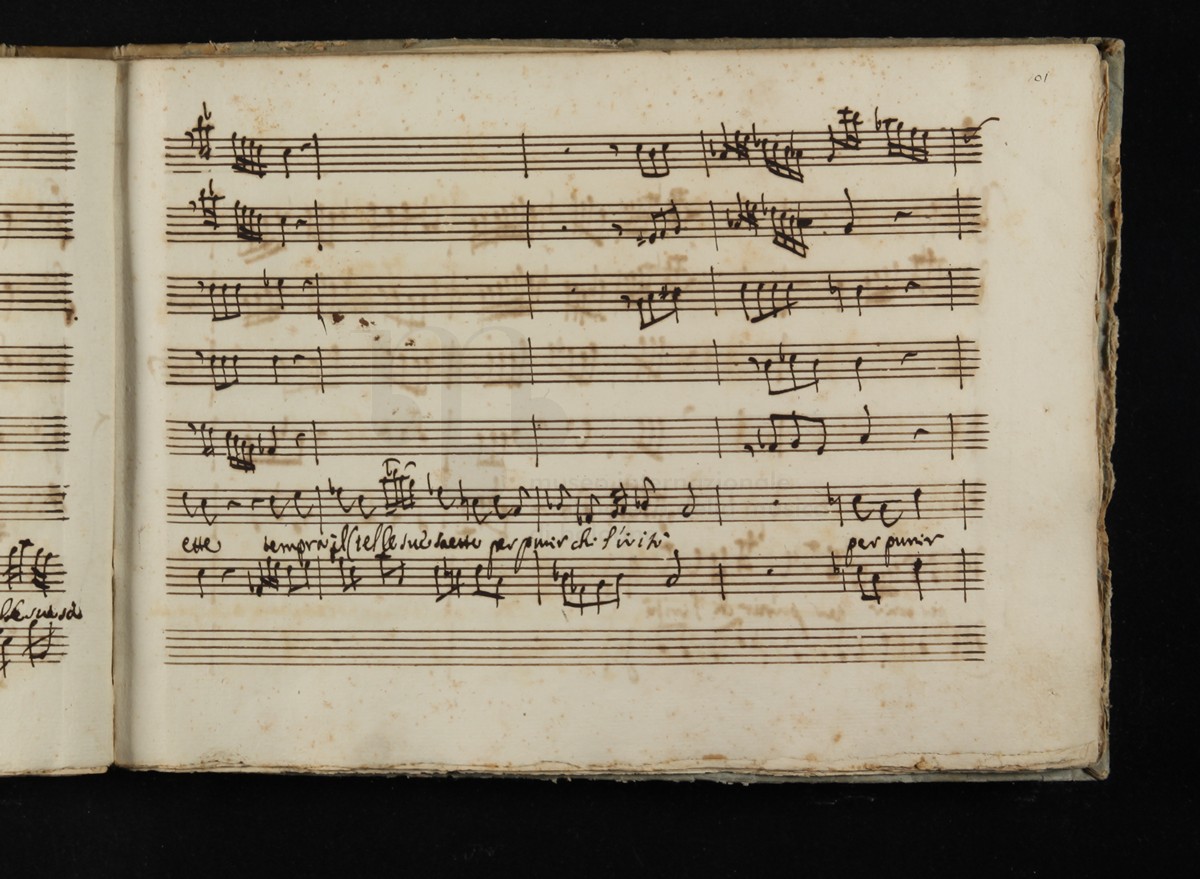 01
ette tempra il Ciel le sue saette per punir chi l'irritò per punir
le sue sa